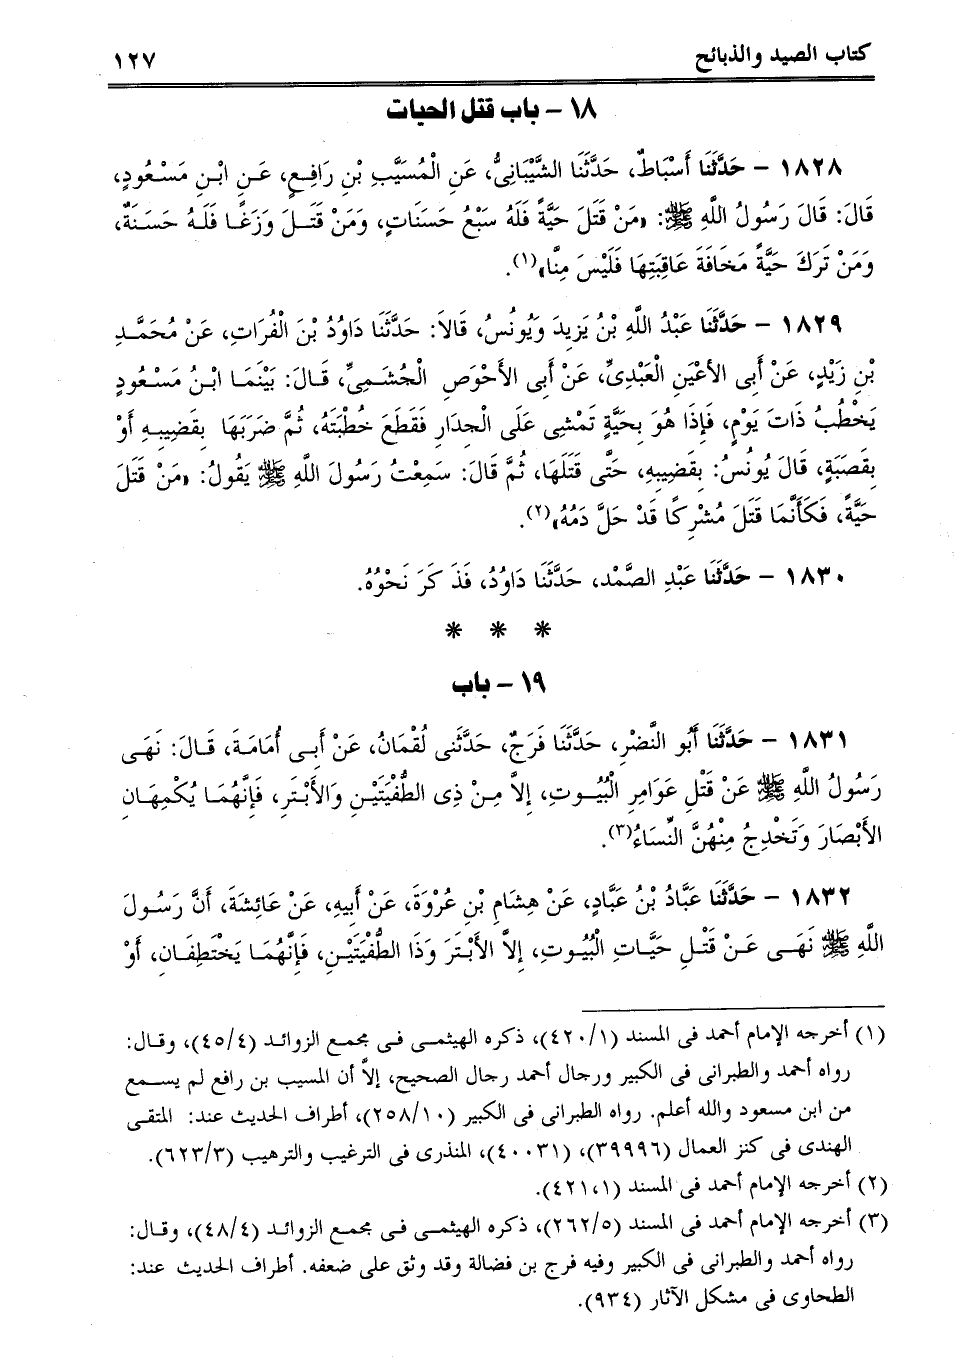 كتاب الصيد والذبائح ١٢٧
١٨ - باب قتل الحيات
١٨٢٨ - حَدَّثَنَا أَسْبَاطٌ، حَدَّثَنَا الشَّيْبَانِىُّ، عَنِ الْمُسَيَّبِ بْنِ رَافِعٍ، عَنِ ابْنِ مَسْعُودٍ،
قَالَ: قَالَ رَسُولُ اللَّهِ ﷺ: «مَنْ قَتَلَ حَيَّةً فَلَهُ سَبْعُ حَسَنَاتٍ، وَمَنْ قَتَلَ وَزَغًا فَلَهُ حَسَنَةٌ،
وَمَنْ تَرَكَ حَيَّةً مَخَافَةَ عَاقِبَتِهَا فَلَيْسَ مِنَّا»(١).
١٨٢٩ - حَدَّثَنَا عَبْدُ اللَّهِ بْنُ يَزِيدَ وَيُونُسُ، قَالاَ: حَدَّثَنَا دَاوُدُ بْنَ الْفُرَاتِ، عَنْ مُحَمَّدِ
بْنِ زَيْدٍ، عَنْ أَبِى الأَعْيَنِ الْعَبْدِىِّ، عَنْ أَبِى الأَحْوَصِ الْجُشَمِىِّ، قَالَ: بَيْنَمَا ابْنُ مَسْعُودٍ
يَخْطُبُ ذَاتَ يَوْمٍ، فَإِذَا هُوَ بِحَيَّةٍ تَمْشِى عَلَى الْجِدَارِ فَقَطَعَ خُطْبَتَهُ، ثُمَّ ضَرَبَهَا بِقَضِيبِهِ أَوْ
بِقَصَبَةٍ، قَالَ يُونُسُ: بِقَضِيبِهِ، حَتَّى قَتَلَهَا، ثُمَّ قَالَ: سَمِعْتُ رَسُولَ اللَّهِ ﷺ يَقُولُ: «مَنْ قَتَلَ
حَيَّةً، فَكَأَنَّمَا قَتَلَ مُشْرِكًا قَدْ حَلَّ دَمُهُ»(٢).
١٨٣٠ - حَدَّثَنَا عَبْدِ الصَّمْد، حَدَّثَنَا دَاوُدُ، فَذَكَرَ نَحْوُهُ.
* * *
١٩ - باب
١٨٣١ - حَدَّثَنَا أَبُو النَّضْرِ، حَدَّثَنَا فَرَجٌ، حَدَّثَنِى لُقْمَانُ، عَنْ أَبِى أُمَامَةَ، قَالَ: نَهَى
رَسُولُ اللَّهِ ﷺ عَنْ قَتْلِ عَوَامِرِ الْبُيُوتِ، إِلاَّ مِنْ ذِى الطُّفْيَتَيْنِ وَالأَبْتَرِ، فَإِنَّهُمَا يُكْمِهَانِ
الأَبْصَارَ وَتَخْدِجُ مِنْهُنَّ النِّسَاءُ(٣).
١٨٣٢ - حَدَّثَنَا عَبَّادُ بْنُ عَبَّادٍ، عَنْ هِشَامِ بْنِ عُرْوَةَ، عَنْ أَبِيهِ، عَنْ عَائِشَةَ، أَنَّ رَسُولَ
اللَّهِ ﷺ نَهَى عَنْ قَتْلِ حَيَّاتِ الْبُيُوتِ، إِلاَّ الأَبْتَرَ وَذَا الطُّفْيَتَيْنِ، فَإِنَّهُمَا يَخْتَطِفَانِ، أَوْ
(١) أخرجه الإمام أحمد فى المسند (٤٢٠/١)، ذكره الهيثمى فى مجمع الزوائد (٤٥/٤)، وقال:
رواه أحمد والطبرانى فى الكبير ورجال أحمد رجال الصحيح، إلاَّ أن المسيب بن رافع لم يسمع
من ابن مسعود والله أعلم. رواه الطبرانى فى الكبير (٢٥٨/١٠)، أطراف الحديث عند: المتقى
الهندى فى كنز العمال (٣٩٩٩٦)، (٤٠٠٣١)، المنذرى فى الترغيب والترهيب (٦٢٣/٣).
(٢) أخرجه الإمام أحمد فى المسند (٤٢١،١).
(٣) أخرجه الإمام أحمد فى المسند (٢٦٢/٥)، ذكره الهيثمى فى مجمع الزوائد (٤٨/٤)، وقال:
رواه أحمد والطبرانى فى الكبير وفيه فرج بن فضالة وقد وثق على ضعفه. أطراف الحديث عند:
الطحاوى فى مشكل الآثار (٩٣٤).